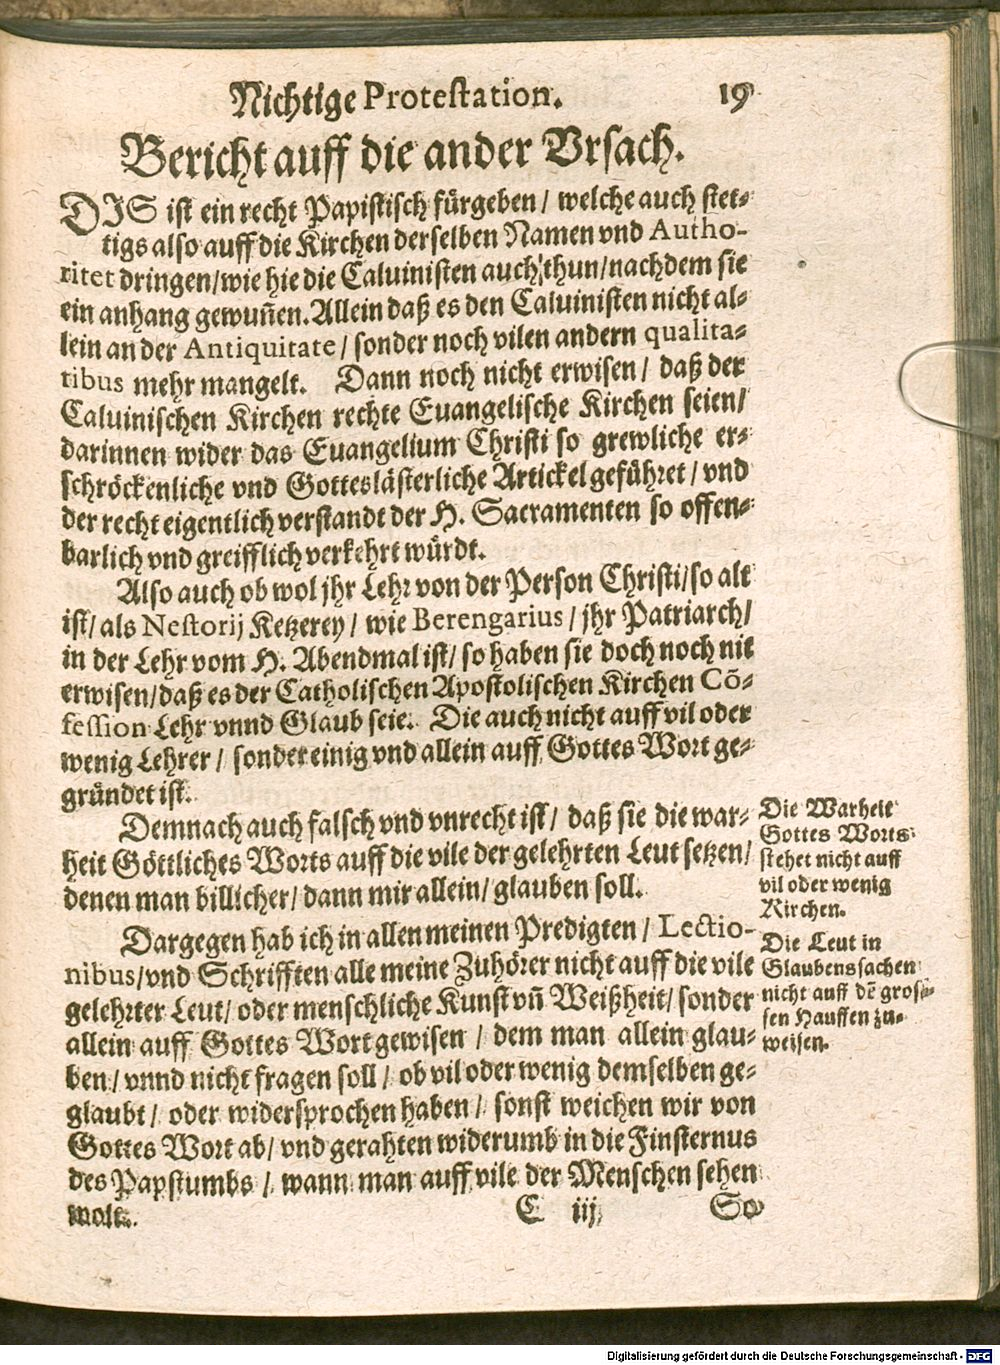 Nichtige Protestation. 19
Bericht auff die ander Vrsach.
DIS ist ein recht Papistisch fürgeben / welche auch stet-
tigs also auff die Kirchen derselben Namen vnd Autho-
ritet dringen/wie hie die Caluinisten auch thun/nachdem sie
ein anhang gewuñen. Allein daß es den Caluinisten nicht al-
lein an der Antiquitate / sonder noch vilen andern qualita-
tibus mehr mangelt. Dann noch nicht erwisen / daß der
Caluinischen Kirchen rechte Euangelische Kirchen seien/
darinnen wider das Euangelium Christi so grewliche er-
schröckenliche vnd Gotteslästerliche Artickel geführet / vnd
der recht eigentlich verstandt der H. Sacramenten so offen-
barlich vnd greifflich verkehrt würdt.
Also auch ob wol jhr Lehr von der Person Christi/so alt
ist/ als Nestorij Ketzerey / wie Berengarius / jhr Patriarch/
in der Lehr vom H. Abendmal ist/ so haben sie doch noch nit
erwisen/daß es der Catholischen Apostolischen Kirchen Cõ-
fession Lehr vnnd Glaub seie. Die auch nicht auff vil oder
wenig Lehrer / sonder einig vnd allein auff Gottes Wort ge-
gründet ist.
Demnach auch falsch vnd vnrecht ist / daß sie die war-
heit Göttliches Worts auff die vile der gelehrten Leut setzen/
denen man billicher/ dann mir allein/ glauben soll.
Die Warheit
Gottes Worts
stehet nicht auff
vil oder wenig
Kirchen.
Dargegen hab ich in allen meinen Predigten / Lectio-
nibus/vnd Schrifften alle meine Zuhörer nicht auff die vile
gelehrter Leut/ oder menschliche Kunst vñ Weißheit/ sonder
allein auff Gottes Wort gewisen / dem man allein glau-
ben / vnnd nicht fragen soll / ob vil oder wenig demselben ge-
glaubt / oder widersprochen haben / sonst weichen wir von
Gottes Wort ab/ vnd gerahten widerumb in die Finsternus
des Papstumbs / wann man auff vile der Menschen sehen
wolt.
Die Leut in
Glaubenssachen
nicht auff dẽ gros-
sen Hauffen zu-
weisen.
C iij So
Digitalisierung gefördert durch die Deutsche Forschungsgemeinschaft - DFG